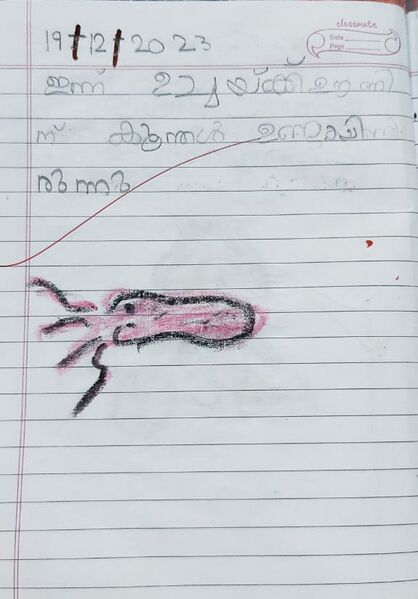 classmate
Date
Page
19/12/2023
ഇന്ന് ഉച്ചയ്ക്ക് ഊണി
ന് കൂന്തൾ ഉണ്ടായി
രുന്നു